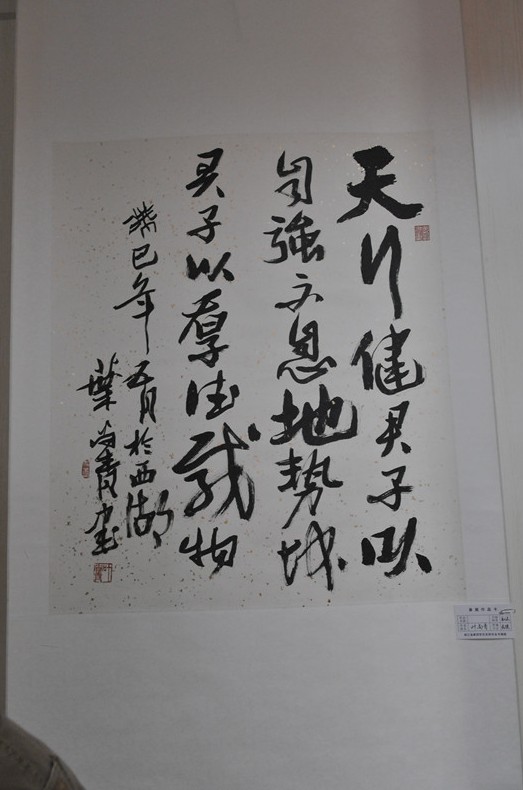 天行健君子以
自強不息地势坤
君子以厚德载物
癸巳年五月於西湖
葉尚青书